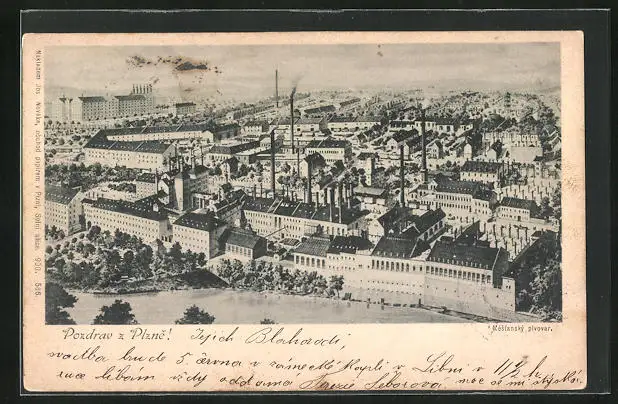 Nákladem Jos. Nováka, obchod papírem v Plzni, Solní ulice. 900. 546.
Pozdrav z Plzně!
Měšťanský pivovar.
Jejich Blahorodí,
svatba bude 5 června v zámecké kapli v Libni v 11½ h.
ruce líbám vždy oddaná moc se mi stýská.